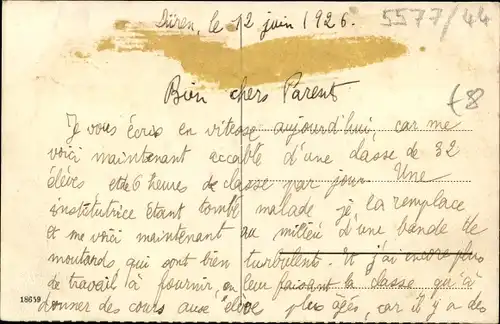 Düren, le 12 juin 1926.
5577/44
£8
Bien chers Parents
Je vous écris en vitesse aujourd'hui, car me
voici maintenant accablé d'une classe de 32
élèves et de 6 heures de classe par jour. Une
institutrice étant tombé malade je la remplace
et me voici maintenant au milieu d'une bande de
moutards qui sont bien turbulents. Et j'ai encore plus
de travail à fournir, en leur faisant la classe qu'à
donner des cours aux élève plus âgés, car il y a des
18659